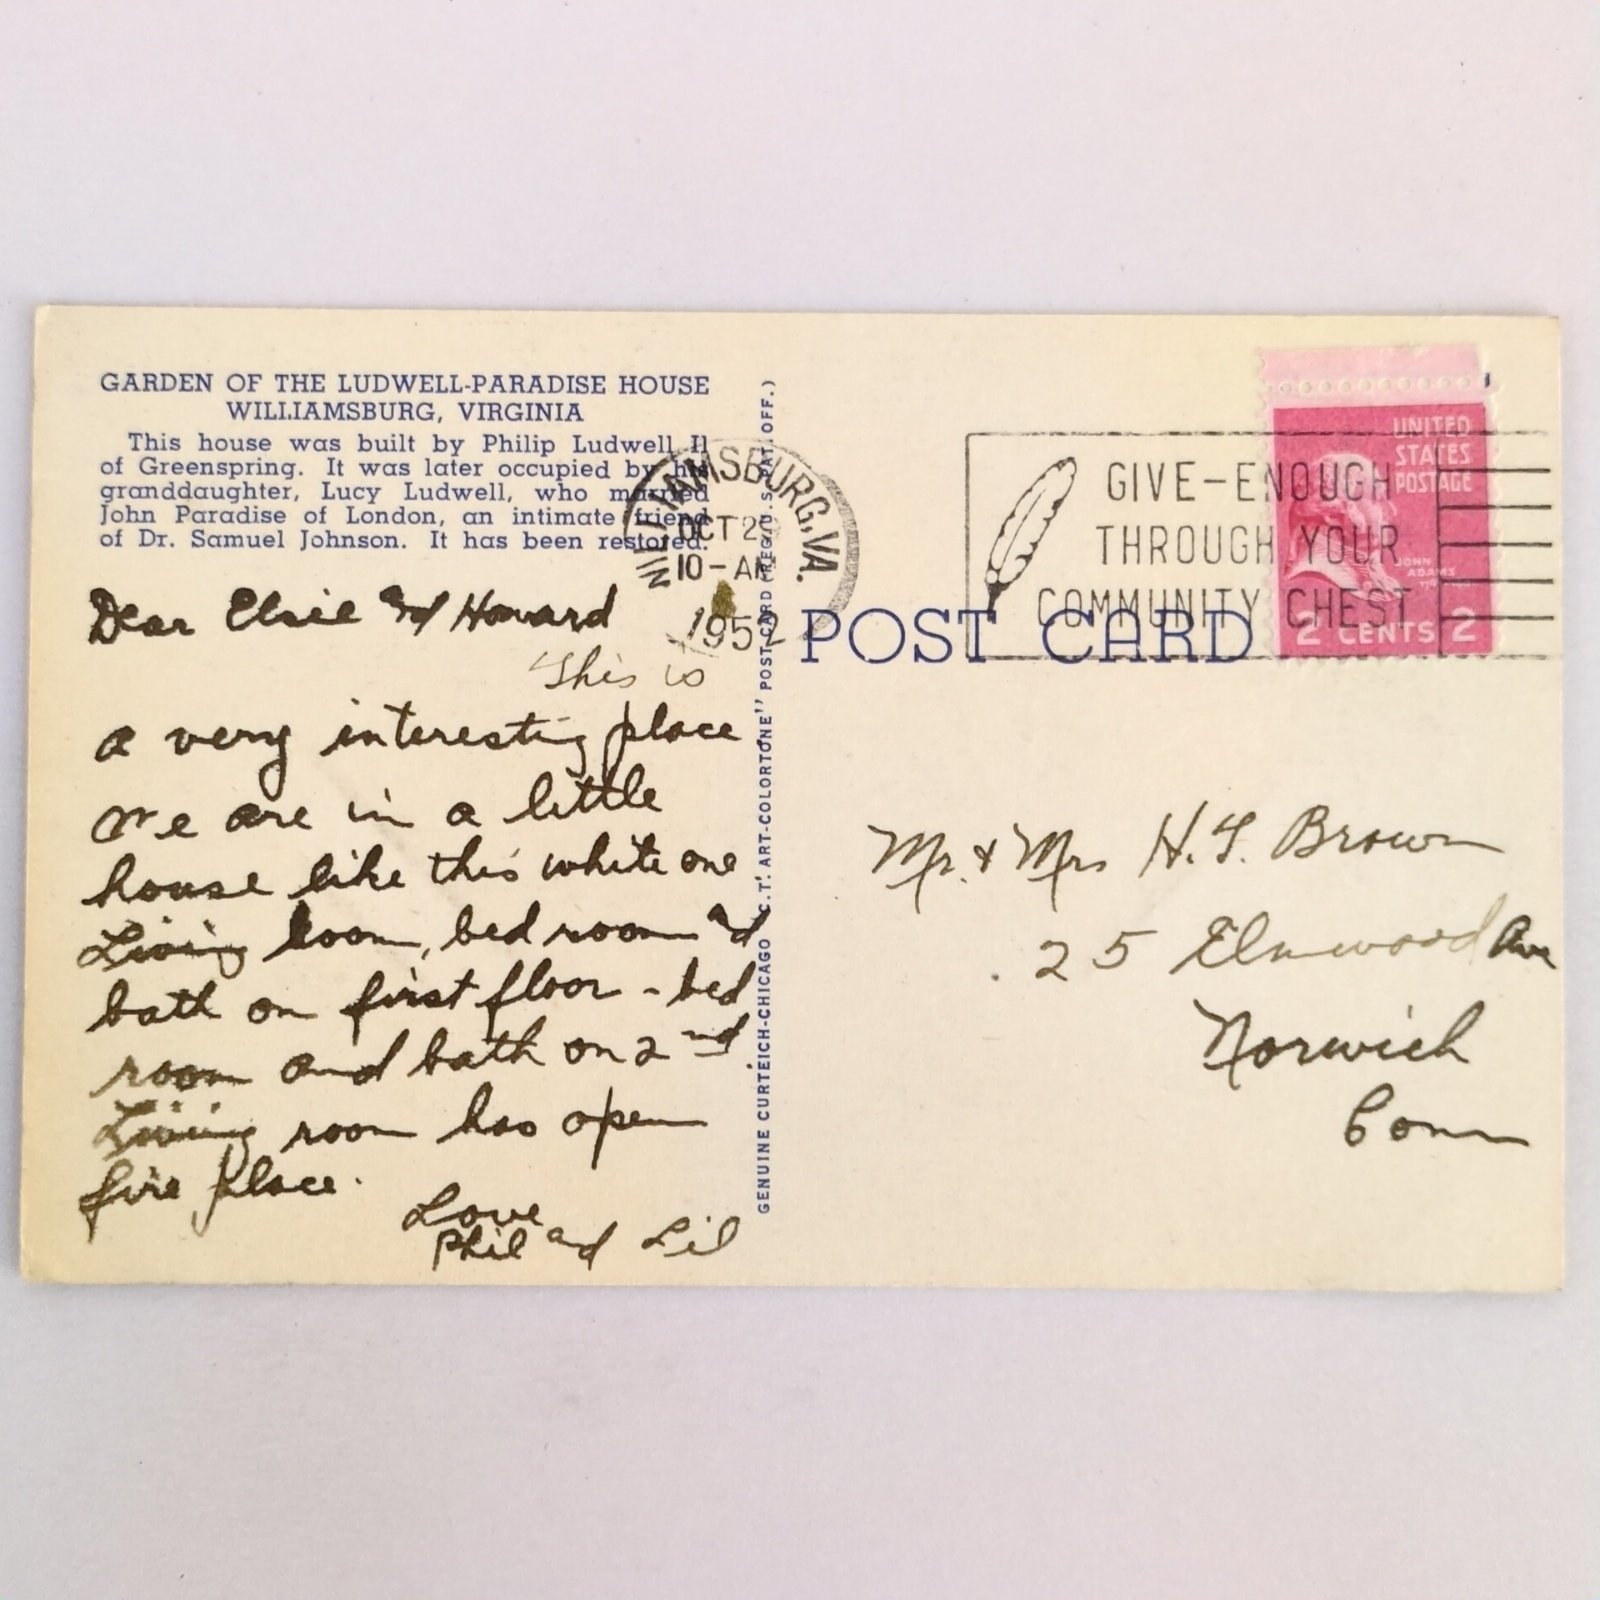 GARDEN OF THE LUDWELL-PARADISE HOUSE
WILLIAMSBURG, VIRGINIA
This house was built by Philip Ludwell II
of Greenspring. It was later occupied by his
granddaughter, Lucy Ludwell, who married
John Paradise of London, an intimate friend
of Dr. Samuel Johnson. It has been restored.
Dear Elsie and Howard
This is
a very interesting place
We are in a little
house like this white one
Living room, bed room and
bath on first floor - bed
room and bath on 2nd
Living room has open
fire place.
Love
Phil and Lil
GENUINE CURTEICH-CHICAGO "C.T. ART-COLORTONE" POST CARD (REG. U.S. PAT. OFF.)
WILLIAMSBURG, VA.
OCT 2
10-AM
1952
GIVE-ENOUGH
THROUGH YOUR
COMMUNITY CHEST
UNITED
STATES
POSTAGE
JOHN
ADAMS
2 CENTS 2
POST CARD
Mr. & Mrs H. F. Brown
25 Elmwood Ave
Norwich
Conn